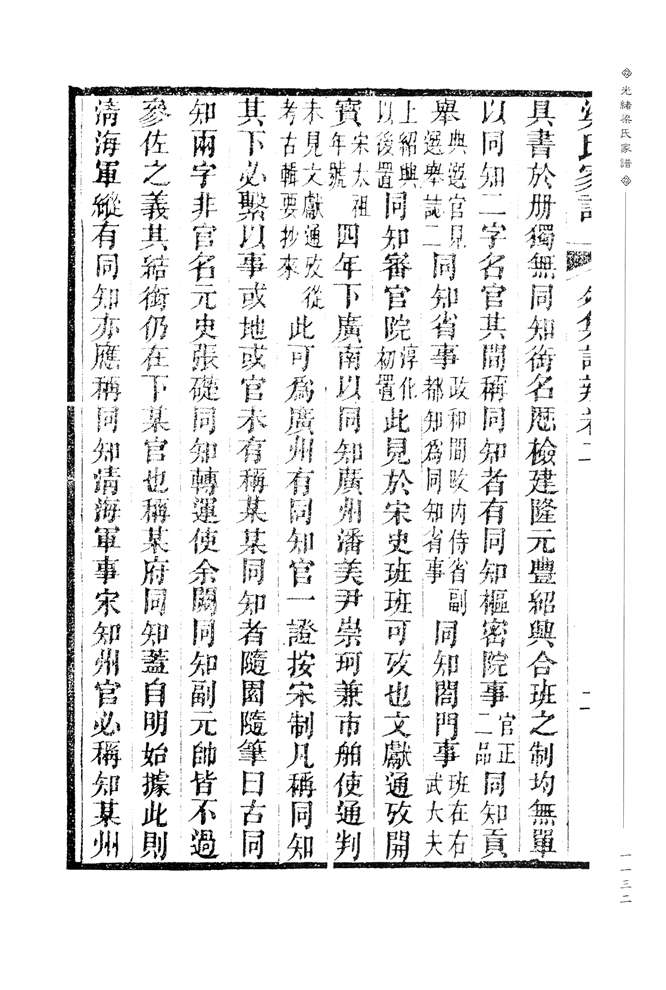 光緒梁氏家譜
一一三二
梁氏家譜 外集記類卷二 二
具書於册獨無同知銜名厯檢建隆元豐紹興合班之制均無單
以同知二字名官其間稱同知者有同知樞密院事官正二品同知貢
舉典選官見選舉誌二同知省事政和間改内侍省副都知爲同知省事同知閤門事班在右武大夫
上紹興以後置同知審官院淳化初置此見於宋史班班可攷也文獻通攷開
寶宋太祖年號四年下廣南以同知廣州潘美尹崇珂兼市舶使通判
未見文獻通攷從考古輯要抄來此可爲廣州有同知官一證按宋制凡稱同知
其下必繫以事或地或官未有稱某某同知者隨園隨筆曰古同
知兩字非官名元史張礎同知轉運使余闕同知副元帥皆不過
參佐之義其結銜仍在下某官也稱某府同知蓋自明始據此則
清海軍縱有同知亦應稱同知清海軍事宋知州官必稱知某州